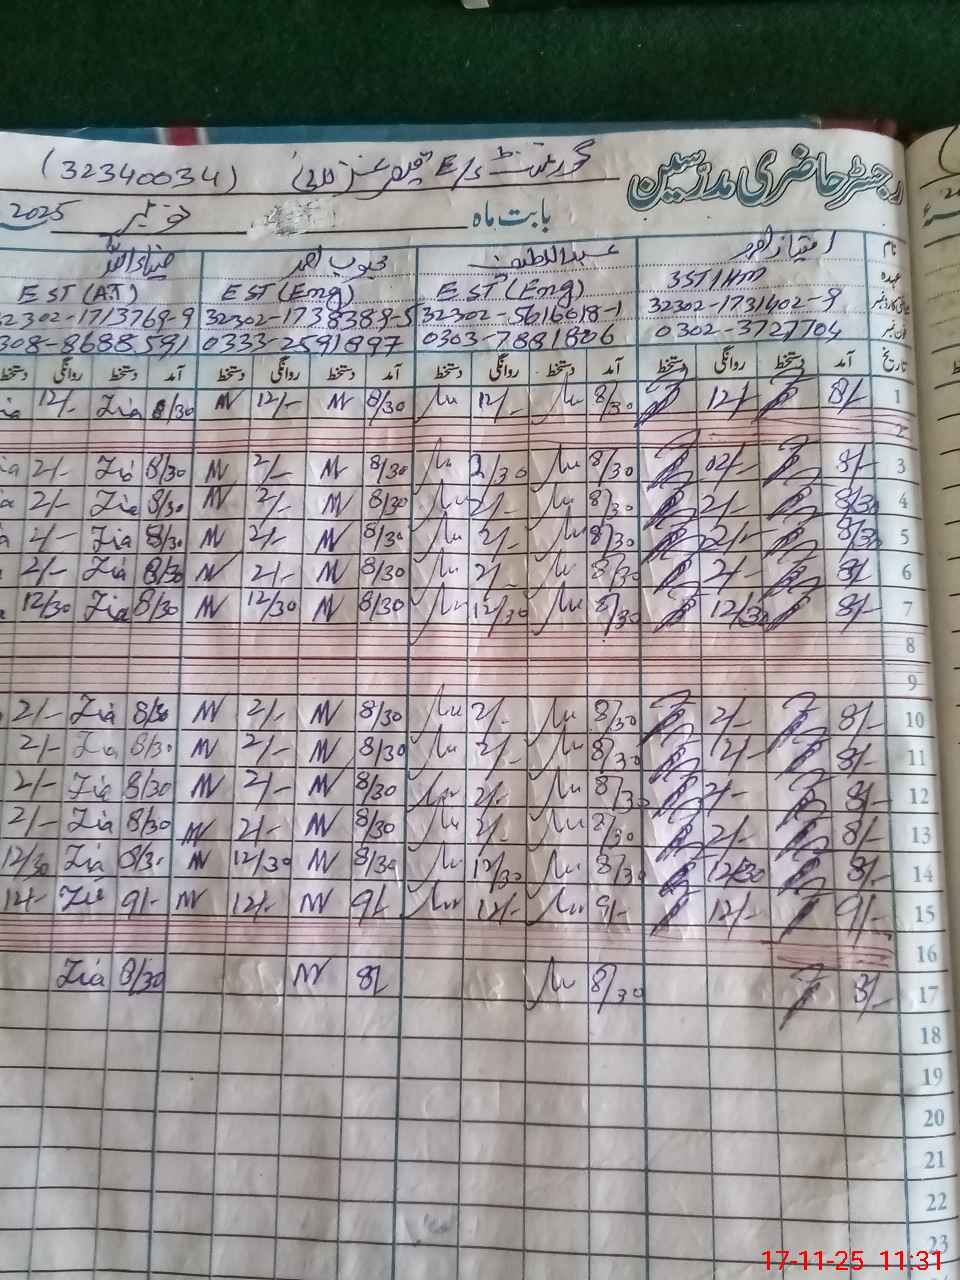 رجسٹر حاضری مدرسین گورنمنٹ E/S (32340034)
بابت ماہ نومبر 2025
نام امتیاز احمد عبداللطیف محبوب احمد ضیاء اللہ
عہدہ SST/HM EST (Eng) EST (Eng) EST (AT)
32302-1731402-9 32302-5616618-1 32302-1738389-5 32302-1713769-9
0302-3727704 0303-7881806 0333-2591897 308-8688591
تاریخ آمد دستخط روانگی دستخط آمد دستخط روانگی دستخط آمد دستخط روانگی دستخط آمد دستخط روانگی دستخط
1 8/- 12/- 8/30 12/- 8/30 M 12/- M 8/30 Zia 12/-
2
3 8/- 02/- 8/30 2/30 8/30 M 2/- M 8/30 Zia 2/-
4 8/30 2/- 8/30 2/- 8/30 M 2/- M 8/30 Zia 2/-
5 8/30 2/- 8/30 2/- 8/30 M 2/- M 8/30 Zia 2/-
6 8/ 2/- 8/30 2/- 8/30 M 2/- M 8/30 Zia 2/-
7 8/- 12/30 8/30 12/30 8/30 M 12/30 M 8/30 Zia 12/30
8
9
10 8/- 2/- 8/30 2/- 8/30 M 2/- M 8/30 Zia 2/-
11 8/- 2/- 8/30 2/- 8/30 M 2/- M 8/30 Zia 2/-
12 8/- 2/- 8/30 2/- 8/30 M 2/- M 8/30 Zia 2/-
13 8/- 2/- 8/30 2/- 8/30 M 2/- M 8/30 Zia 2/-
14 8/- 12/30 8/30 12/30 8/30 M 12/30 M 8/30 Zia 12/30
15 9/- 12/- 9/- 12/- 9/- M 12/- M 9/- Zia 12/-
16
17 8/- 8/30 8/ M 8/30 Zia
18
19
20
21
22
23
17-11-25 11:31